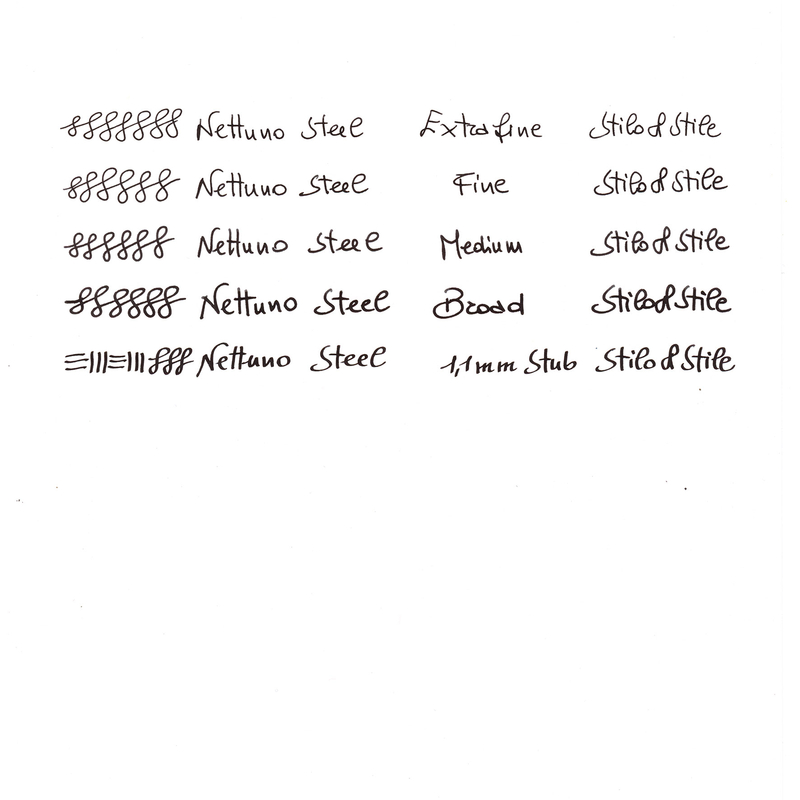 Nettuno Steel Extrafine Stilo & Stile
Nettuno Steel Fine Stilo & Stile
Nettuno Steel Medium Stilo & Stile
Nettuno Steel Broad Stilo & Stile
Nettuno Steel 1,1mm Stub Stilo & Stile